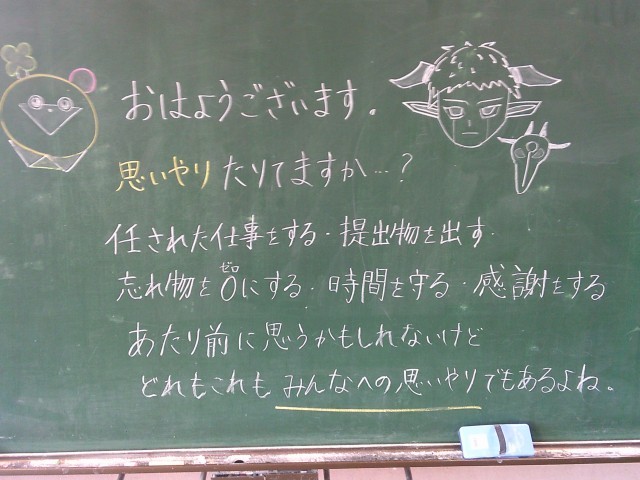 おはようございます。
思いやりたりてますか…?
任された仕事をする・提出物を出す・
忘れ物を0にする・時間を守る・感謝をする
ゼロ
あたり前に思うかもしれないけど
どれもこれもみんなへの思いやりでもあるよね。